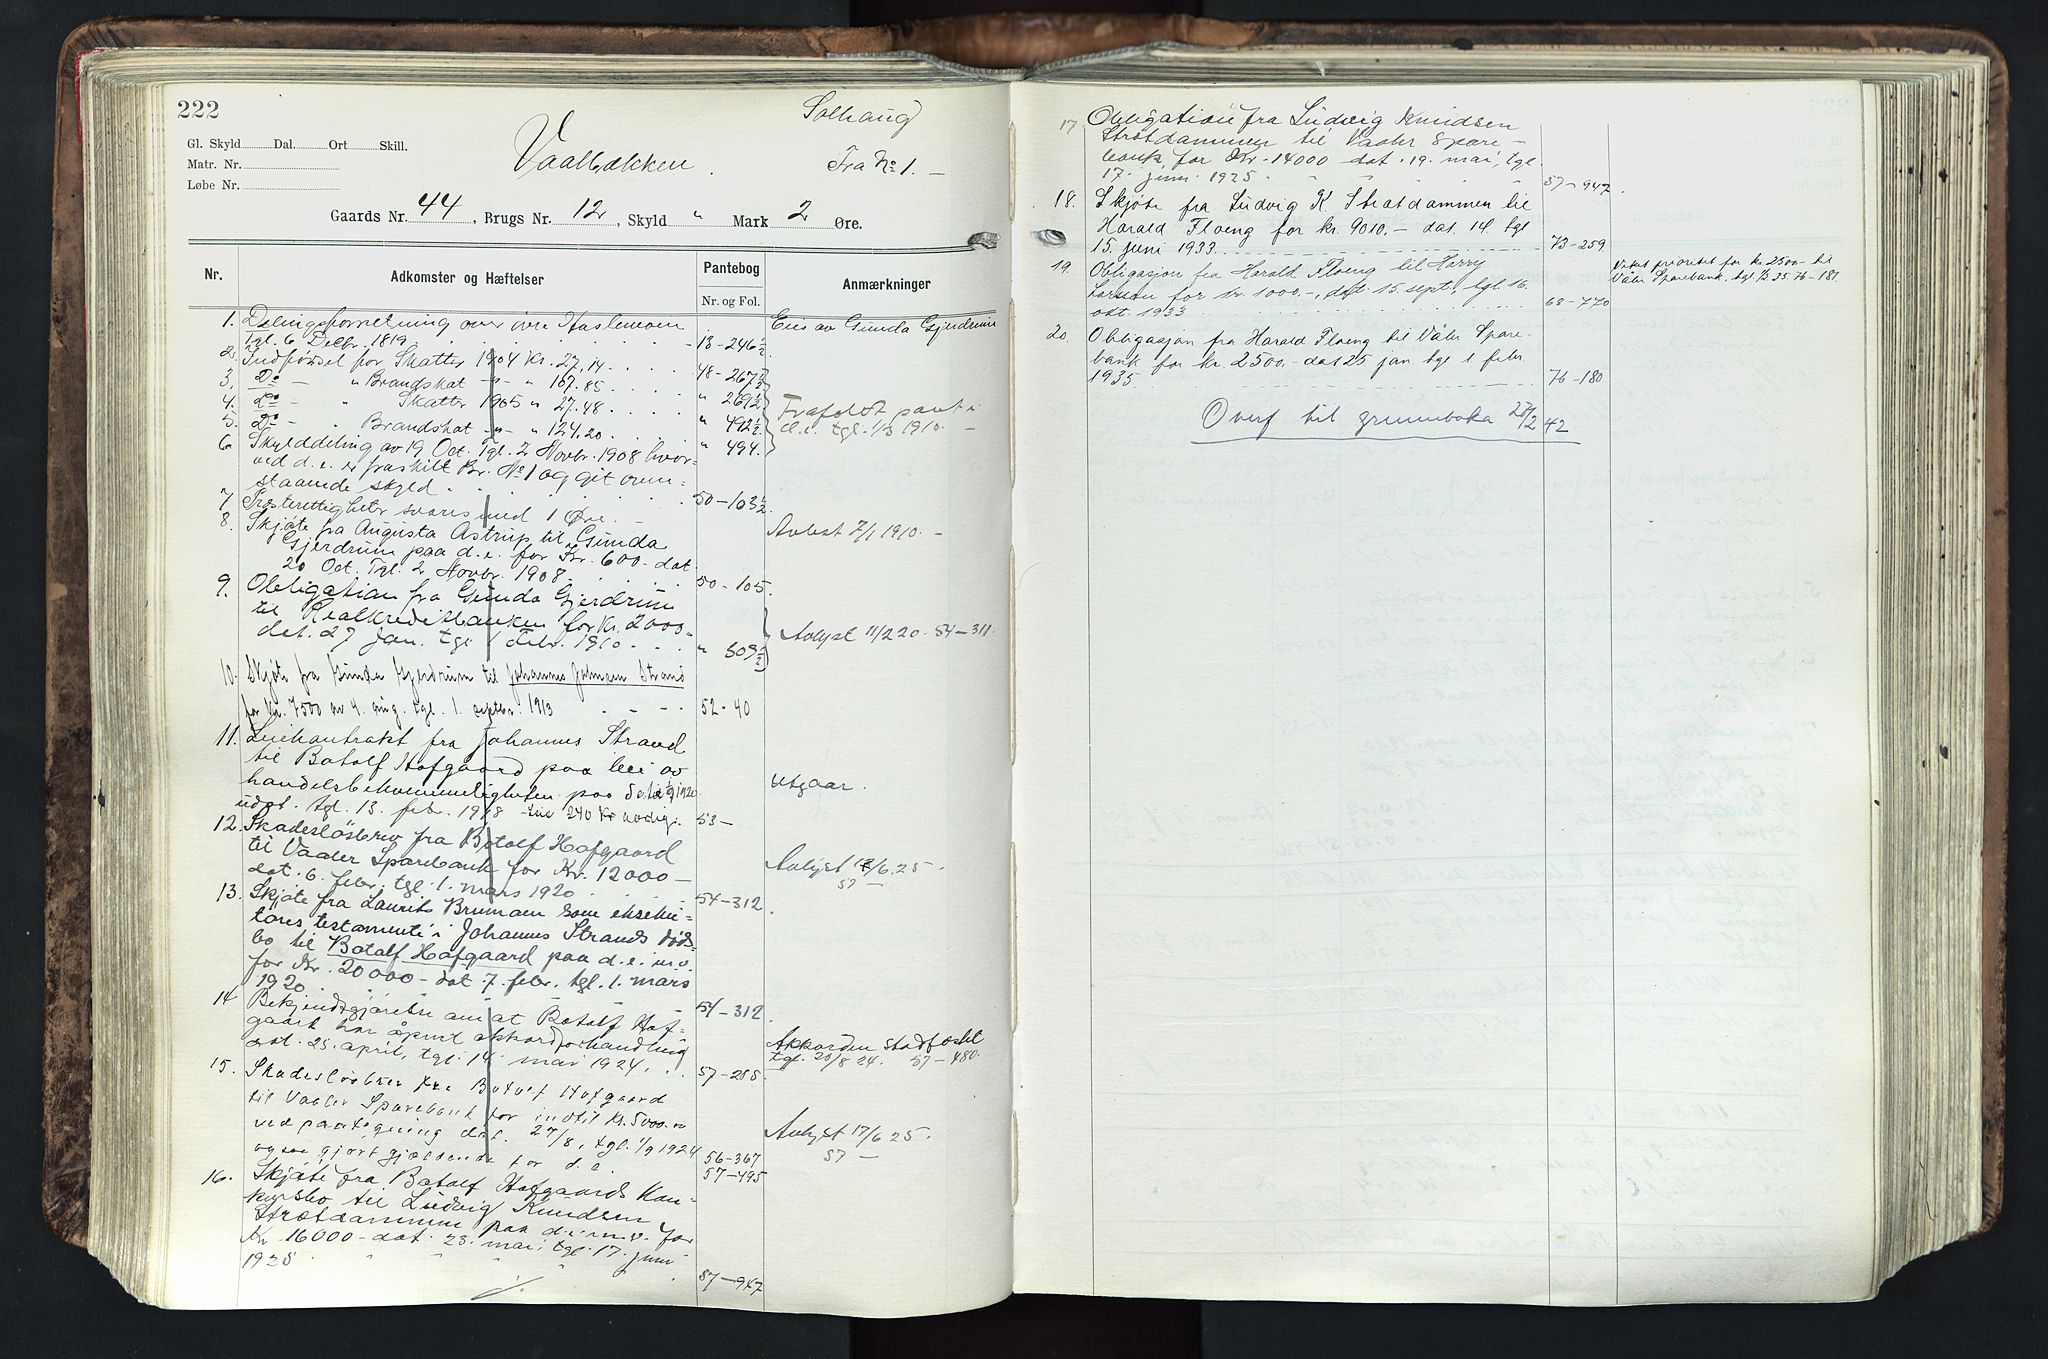 222
Solhaug
Gl. Skyld Dal. Ort Skill.
Matr. Nr.
Løbe Nr.
Vaalbækken.
Fra No 1. —
Gaards Nr. 44, Brugs Nr. 12, Skyld " Mark 2 Øre.
Nr. Adkomster og Hæftelser Pantebog Anmærkninger
Nr. og Fol.
1. Delingsforretning over övre Haslemoen Eies av Gunda Gjerdrum
tgl. 6 Decbr. 1819 13-246½
2. Indførsel for Skatter 1904 Kr. 27,14 48-267½
3. Do — " Brandskat — " — " 167.85 " 267½
4. Do — " Skatter 1905 " 27.48 " 269½ Frafaldt pant i
5. Do — " Brandskat — " — " 124,20 " 492½ d.e. tgl. 1/3 1910. —
6 Skylddeling av 19 Oct. Tgl. 2 Novbr. 1908 hvor- " 494.
ved d.e. er fraskilt Br. No 1 og git oven-
staaende skyld 50-103½
7 Træsterettigheter svares med 1 Øre. —
8. Skjøte fra Augusta Astrup til Gunda Avlest 7/1 1910. —
Gjerdrum paa d.e. for Kr. 600.- dat
20 Oct. Tgl. 2 Novbr. 1908. 50-105.
9. Obligation fra Gunda Gjerdrum
til Realkreditbanken for Kr. 2000- Avlyst 11/2 20. 54-311.
dat. 27 Jan. tgl 1 Febr. 1910 " 509½
10. Skjøte fra Gunda Gjerdrum til Johannes Johnsen Strand
for kr. 7500 av 4. aug. tgl. 1. septbr. 1913 52-40
11. Leiekontrakt fra Johannes Strand
til Botolf Hofgaard paa leie av
handelsbekvemmeligheten paa utgaar.
udat. tgl. 13. febr. 1918 leie 240 Kr 53-
12. Skadesløsbrev fra Botolf Hofgaard
til Vaaler Sparebank for Kr. 12000- Avlyst 17/6 25.
dat. 6. febr. tgl. 1. mars 1920 54-312 57 —
13. Skjøte fra Laurits Brumoen som ekseku-
tores testamenti i Johannes Strands døds-
bo til Botolf Hofgaard paa d.e. m.v.
for Kr. 20000- dat 7. febr. tgl. 1. mars
1920 54-312
14 Bekjendtgjørelse om at Botolf Hof-
gaard har åpnet akkordforhandling Akkorden stadfæstet
dat. 25. april, tgl. 14. mai 1924. 57-285 tgl. 20/8 24. 57-480.
15. Skadesløsbrev fra Botolf Hofgaard
til Vaaler Sparebank for indtil Kr. 5000.00
ved paategning dat. 27/8, tgl. 1/9 1924 Avlyst 17/6 25.
ogsaa gjort gjældende for d.e. 56-367 57 —
57-495
16. Skjøte fra Botolf Hofgaards Kon-
kursbo til Ludvig Knudsen
Strætdammen paa d.e. m.v. for
Kr. 16000- dat. 23. mai, tgl. 17. juni
1925 57-947
17. Obligation fra Ludvig Knudsen
Strætdammen til Vaaler Spare-
bank for Kr. 14000- dat. 19. mai, tgl.
17. juni 1925 57-947.
18. Skjøte fra Ludvig K. Strætdammen til
Harald Floeng for kr. 9010.- dat. 14. tgl
15. juni 1933. 73-259
19. Obligasjon fra Harald Floeng til Harry Veket prioritet for kr. 2500- til
Larsen for kr. 1000.-, dat. 15. sept., tgl. 16. Våler Sparebank, tgl. 1/2 35 76-181.
okt. 1933 68-770
20. Obligasjon fra Harald Floeng til Våler Spare-
bank for kr. 2500.- dat 25 jan tgl 1 febr
1935 76-180
Overf til grunnboka 27/2 42